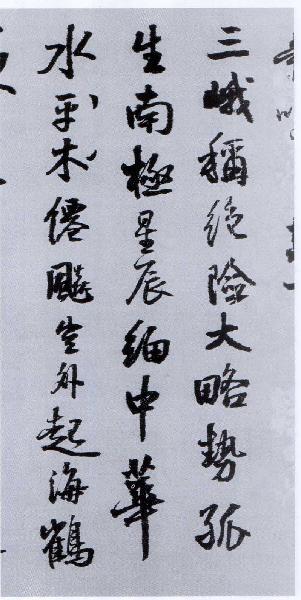 三峨稱絕險大略勢孤
生南極星辰細中華
水平木僊飈空外起海鶴